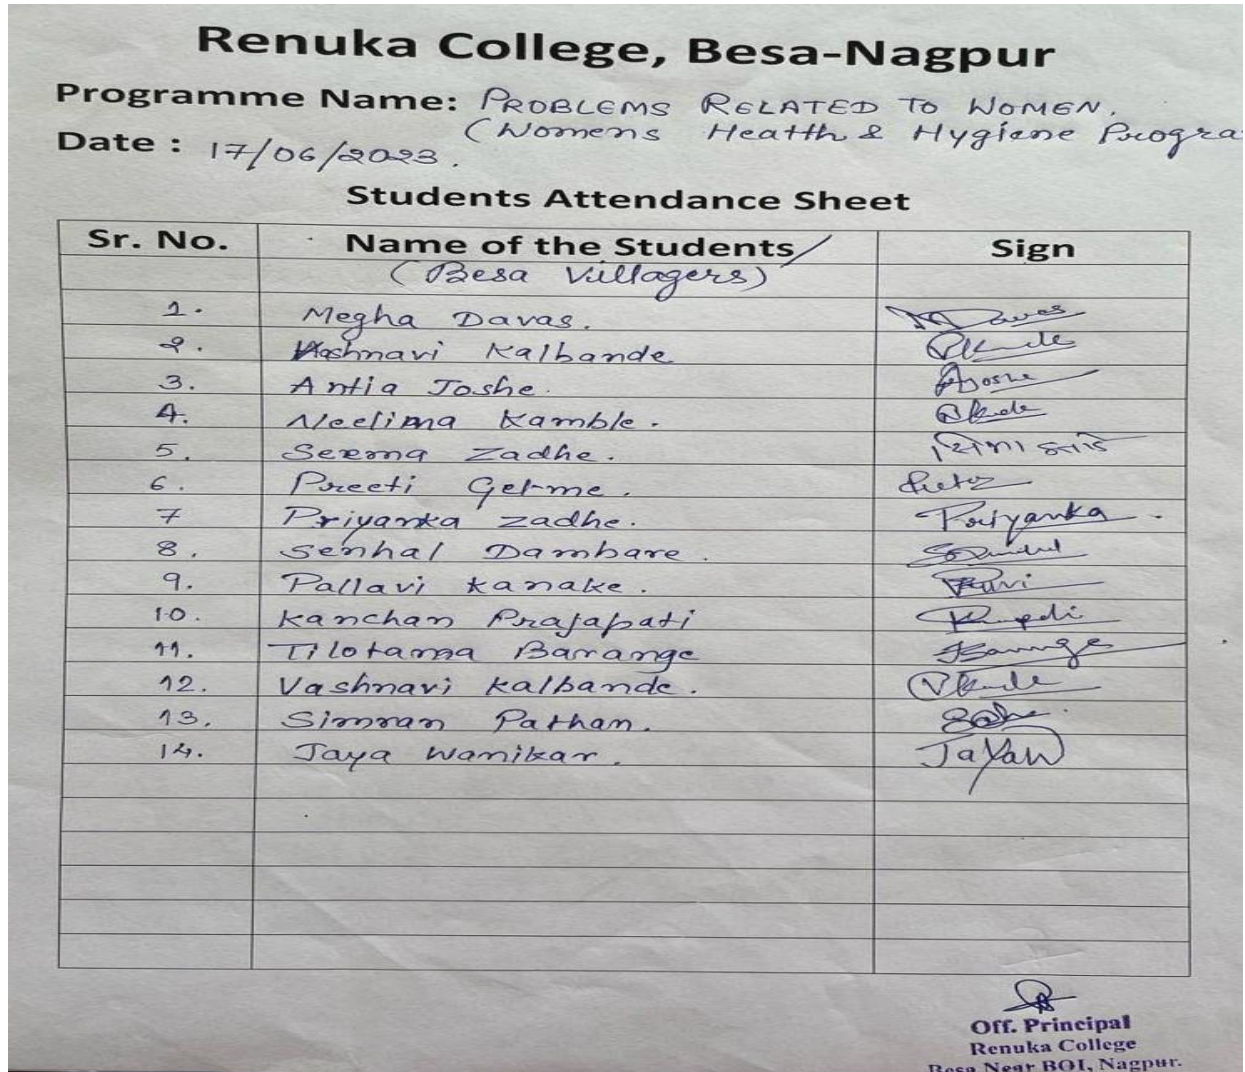 Renuka College, Besa-Nagpur
Programme Name: PROBLEMS RELATED TO WOMEN.
(Womens Heatth & Hygiene Progra
Date : 17/06/2023.
Students Attendance Sheet
Sr. No. Name of the Students/ Sign
(Besa Villagers)
1. Megha Davas.
2. Vashnavi Kalbande
3. Antia Joshe. Joshe
4. Neelima Kamble.
5. Seema Zadhe.
6. Preeti Gelme.
7 Priyanka Zadhe. Priyanka.
8. Senhal Dambare.
9. Pallavi Kanake.
10. Kanchan Prajapati
11. Tilotama Barange
12. Vashnavi Kalbande.
13. Simran Pathan.
14. Jaya Wanikar. JayaW
Off. Principal
Renuka College
Besa Near BOI, Nagpur.